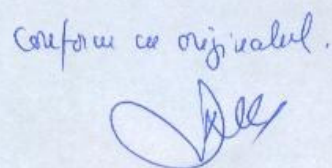 Conform cu originalul.